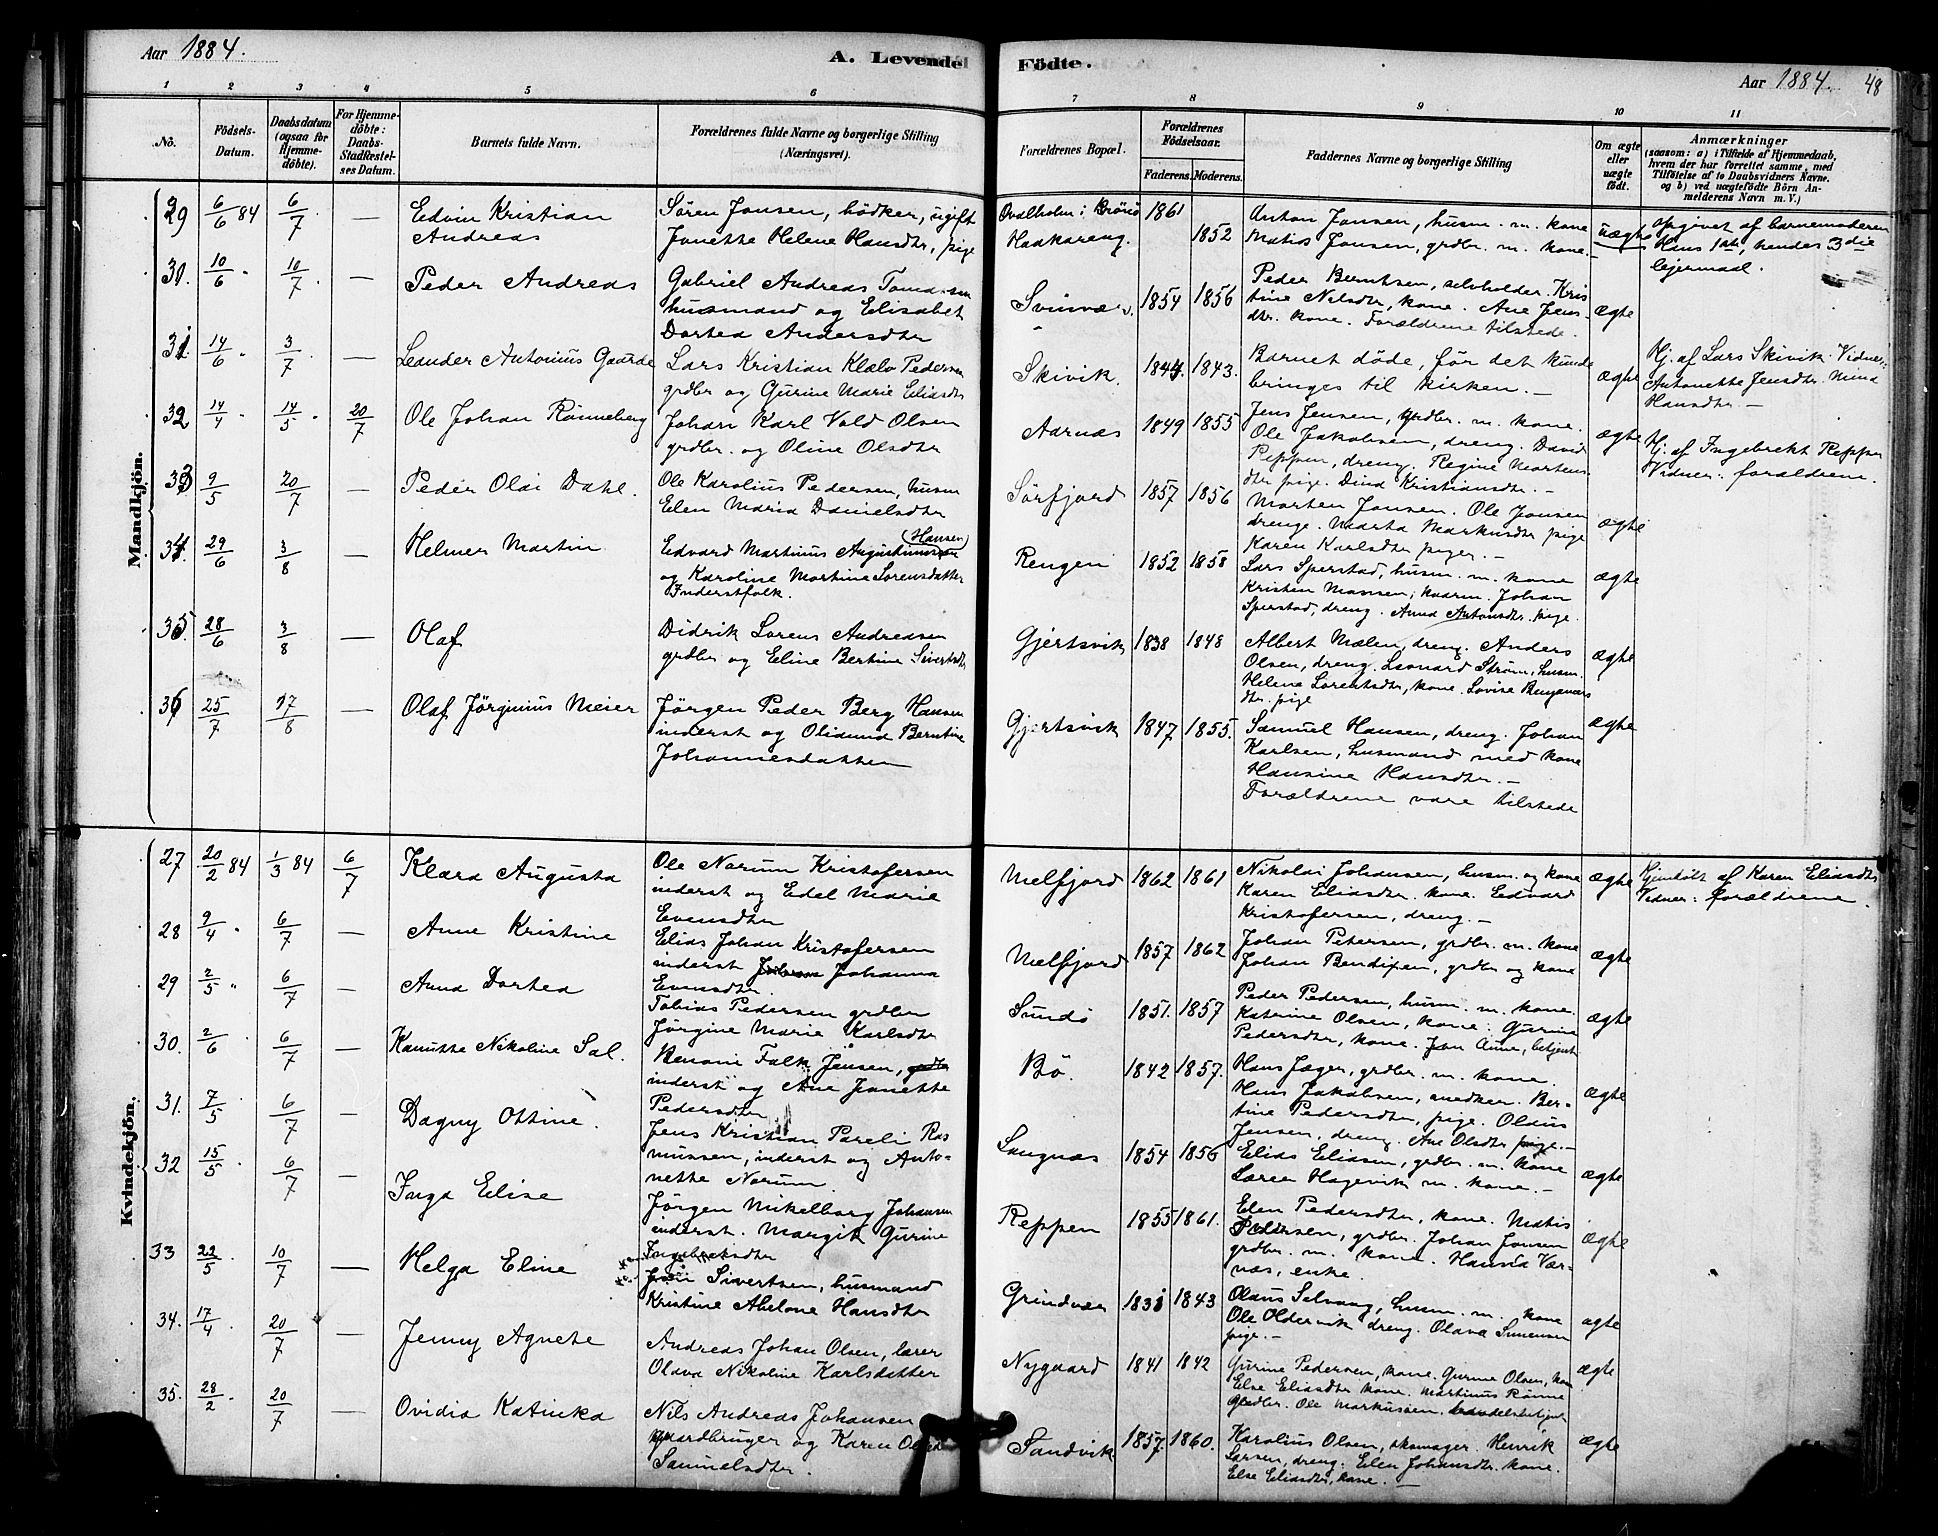 Aar 1884.
A. Levende Födte.
Aar 1884. 48
1 2 3 4 5 6 7 8 9 10 11
No.
Födsels-
Datum.
Daabsdatum
(ogsaa for
Hjemme-
döbte).
For Hjemme-
döbte:
Daabs-
Stadfæstel-
ses Datum.
Barnets fulde Navn.
Forældrenes fulde Navne og borgerlige Stilling
(Næringsvei).
Forældrenes Bopæl.
Forældrenes
Födselsaar.
Faderens. Moderens.
Faddernes Navne og borgerlige Stilling
Om ægte
eller
uægte
födt.
Anmærkninger
(saasom: a) i Tilfælde af Hjemmedaab,
hvem der har forrettet samme, med
Tilföielse af to Daabsvidners Navne.
og b) ved uægtefödte Börn An-
melderens Navn m. V.)
Mandkjön.
29 6/6 84 6/7 — Edvin Kristian
Andreas
Sören Jonsen, bödker, ugift
Janette Helene Hansdtr, pige
Haakareng.
1861 1852
Anton Jonsen, husm. m. kone
Matias Jonsen, grdbr. m. kone.—
uægte
Opgivet af barnemoderen
Hans 1ste, hendes 3die
leiermaal.
30. 10/6 10/7 — Peder Andreas
Gabriel Andreas Tomassen
husmand og Elisabet
Dortea Andersdtr
Svinvær
1854 1856
Peder Berntsen, selvholder. Kris
tine Nilsdtr, kone. Ane Jens-
dtr. kone. Forældrene tilstede.
ægte
31. 14/6 3/7 — Leander Antonius Gaarde
Lars Kristian Klæbo Pedersen
grdbr og Gurine Marie Eliasdtr
Skivik.
1844. 1843.
Barnet döde, för det kunde
bringes til kirken.—
ægte
Hj. af Lars Skivik. Vidner:
Antonette Jensdtr. Mina
Hansdtr.—
32 14/4 14/5 20/7 Ole Johan Rönneberg
Johan Karl Vold Olsen
grdbr. og Oline Olsdtr
Aarnæs
1849 1855
Jens Jensen, grdbr. m. kone.
Ole Jakobsen, dreng. David
Reppen, dreng. Regine Martens
dtr pige. Dina Kristiansdtr.—
ægte
Hj. af Ingebrekt Reppen
Vidner: forældrene.
33 9/5 20/7 — Peder Olai Dahl.
Ole Karolius Pedersen, husm
Elen Maria Danielsdtr
Sörfjord
1857 1856
Morten Jonsen. Ole Jonsen
drenge. Marta Markusdtr pige
Karen Karlsdtr piger.—
ægte
34. 29/6 3/8 — Helmer Martin
(Hansen)
Edvard Martinus Augustinussen
og Karoline Martina Sörensdatter
Inderstfolk.
Rengen
1852 1858
Lars Sperstad, husm. m. kone
Kristen Monsen; kaarm. Johan
Sperstad, dreng. Anna Antonsdtr. pige.
ægte
35. 28/6 3/8 — Olaf
Didrik Lorens Andreasen
grdbr og Eline Bertine Sivertsdtr
Gjertsvik
1838 1848
Albert Mælen, dreng. Anders
Olsen, dreng. Leonard Ström, husm.
Helena Lorentsdtr, kone. Lovise Benjamins
dtr. pige
ægte
36 25/7 17/8 — Olaf Jörginius Meier
Jörgen Peder Berg Hansen
inderst og Olidund Berntine
Johannesdatter
Gjertsvik
1847 1855.
Samuel Hansen, dreng. Johan
Karlsen, husmand med kone
Hansine Hansdtr.—
Forældrene vare tilstede
ægte
Kvindekjön.
27 20/2 84 1/3 84 6/7 Klara Augusta
Ole Norum Kristofersen
inderst og Edel Marie
Evensdtr
Melfjord
1862 1861
Nikolai Johansen, husm. og kone
Karen Eliasdtr. kone. Edvard
Kristofersen, dreng.—
ægte
Hjemdöbt af Karen Eliasdtr
Vidner: forældrene.
28 9/4 6/7 — Anne Kristine
Elias Johan Kristofersen
inderst Johanna
Evensdtr.
Melfjord
1857 1862
Johan Petersen, grdbr. m. kone
Johan Bendixen, grdbr og kone
ægte
29 2/5 6/7 — Anna Dortea
Tobias Pedersen grdbr
Jörgine Marie Karlsdtr
Sundö
1851. 1857
Peder Pedersen, husm. m. kone.
Katrine Olsen, kone. Gurine
Pedersdtr, kone. Jon Aune, betjent
ægte
30. 2/6 6/7 — Kanutte Nikoline Sal.
Benoni Falk Jensen,
inderst og Ane Jonette
Pedersdtr
Bö.
1842 1857.
Hans Jæger, grdbr. m. kone.
Hans Jakobsen, snedker. Ber-
tine Pedersdtr, pige. Olaus
Jensen, dreng. Ane Olsdtr pige.—
ægte
31. 7/5 6/7 — Dagny Ottine.
Jens Kristian Pareli Ras
mussen, inderst og Anto-
nette Norum.
Langnæs
1854 1856
Elias Eliasen, grdbr. m. kone
Sören Hagevik m. kone.—
ægte
32 15/5 6/7 — Inga Elise
Jörgen Mikelborg Johansen
inderst. Margit Gurine
Ingebrektsdtr
Reppen
1855 1861.
Elen Pedersdtr, kone. Matis
Pedersen, grdbr. Johan Jonsen
grdbr. m. kone. Hansia Vær-
næs, enke.
ægte
33 22/5 10/7 — Helga Eline
Sivertsen, husmand
Kristine Abelone Hansdtr
Grindvær
1831 1843
Olaus Selvaag, husm. m. kone
Ole Oldervik dreng. Olava Simensen
pige.—
ægte
34. 17/4 20/7 — Jenny Agnete
Andreas Johan Olsen, lærer
Olava Nikoline Karlsdatter
Nygaard
1841 1842
Gurine Pedersen, kone. Gurine Olsen, kone
Else Eliasdtr kone. Martinus Rönne
grdbr. Ole Markussen. handelsbetjent
ægte
35. 28/2 20/7 — Ovidia Katinka
Nils Andreas Johansen
gaardbruger og Karen Olea
Samuelsdtr.
Sandvik
1857. 1860.
Karolius Olsen, skomager. Henrik
Larsen, dreng. Elen Johansdtr. kone.
Else Eliasdtr, kone.—
ægte